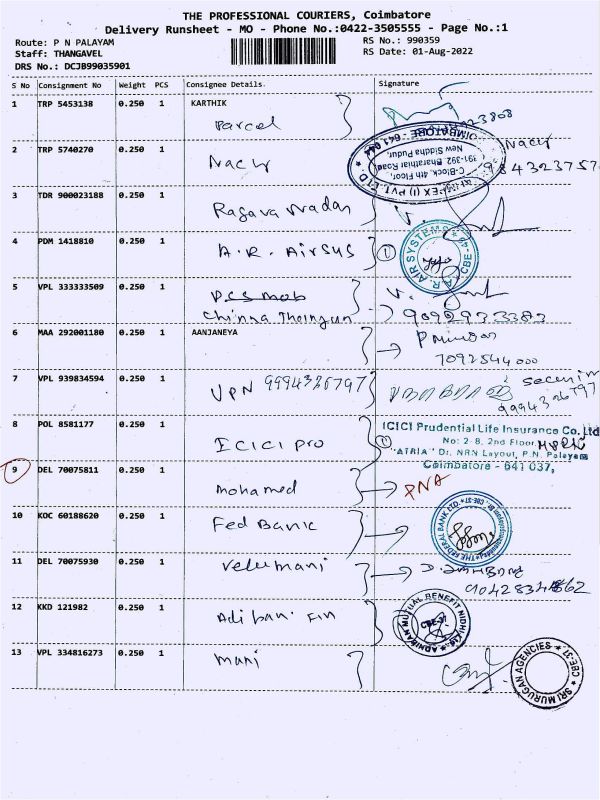 THE PROFESSIONAL COURIERS, Coimbatore
Delivery Runsheet - MO - Phone No.:0422-3505555 - Page No.:1
Route: P N PALAYAM
RS No.: 990359
Staff: THANGAVEL
RS Date: 01-Aug-2022
DRS No.: DCJB99035901
S No Consignment No Weight PCS Consignee Details Signature
1 TRP 5453138 0.250 1 KARTHIK
Parcel
2 TRP 5740270 0.250 1
Nacy Nacy
COIMBATORE - 641 044
C-Block, 4th Floor,
191-392, Bharathiar Road,
New Siddha Pudur,
3 TDR 900023188 0.250 1
Ragava
4 PDM 1418810 0.250 1
A.R. AirSys 1
A.R. AIR SYSTEMS CBE-44
5 VPL 333333509 0.250 1
Chinna
6 MAA 292001180 0.250 1 AANJANEYA
7092544000
7 VPL 939834594 0.250 1
VPN 9994326797
9994326797
8 POL 8581177 0.250 1
ICICI pro 1
ICICI Prudential Life Insurance Co. Ltd
No: 2-8, 2nd Floor,
"ATRIA" Dr. NRN Layout, P.N. Palayam
Coimbatore - 641 037,
9 DEL 70075811 0.250 1
mohamed PNA
10 KOC 60188620 0.250 1
Fed Bank
THE FEDERAL BANK LTD. CBE-37
11 DEL 70075930 0.250 1
Velumani
12 KKD 121982 0.250 1
Adiban Fin
MUTUAL BENEFIT NIDHI LTD. CBE-37
13 VPL 334816273 0.250 1
mani
SRI MURUGAN AGENCIES CBE-37